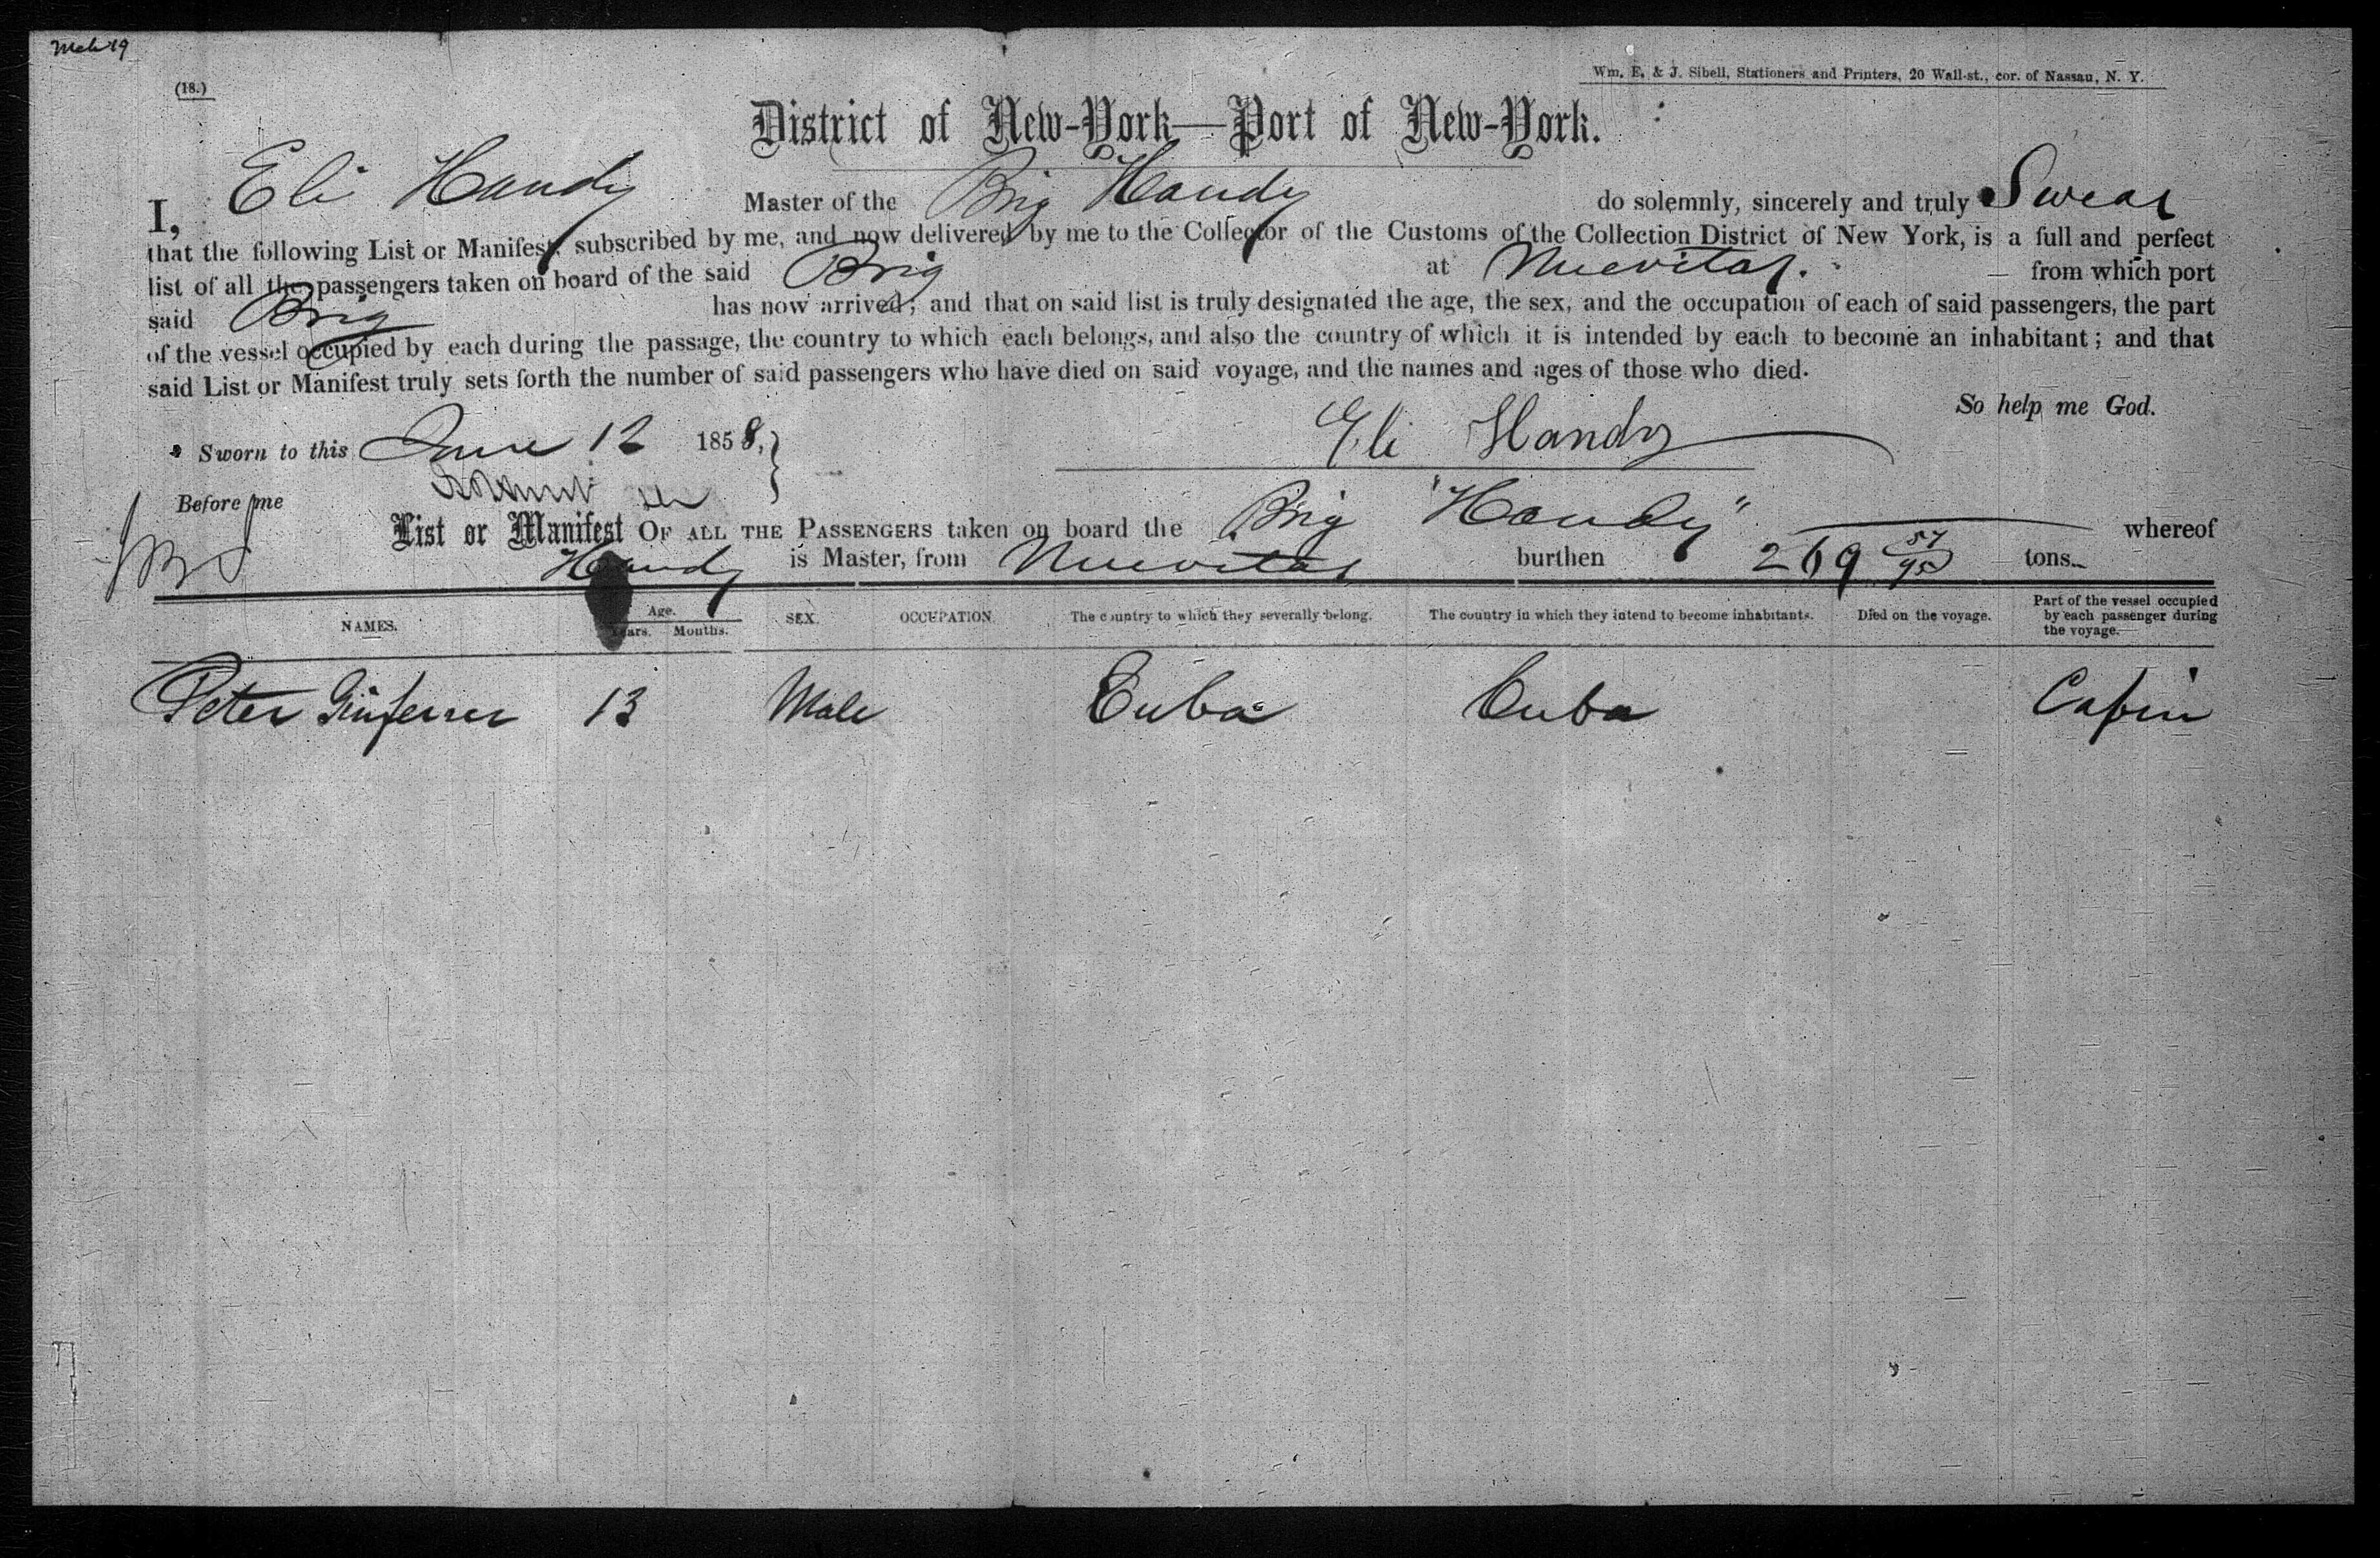 (18.)
Wm. E. & J. Sibell, Stationers and Printers, 20 Wall-st., cor. of Nassau, N. Y.
District of New-York—Port of New-York.
I, Eli Handy Master of the Brig Handy do solemnly, sincerely and truly Swear
that the following List or Manifest, subscribed by me, and now delivered by me to the Collector of the Customs of the Collection District of New York, is a full and perfect
list of all the passengers taken on board of the said Brig at Nuevitas. from which port
said Brig has now arrived; and that on said list is truly designated the age, the sex, and the occupation of each of said passengers, the part
of the vessel occupied by each during the passage, the country to which each belongs, and also the country of which it is intended by each to become an inhabitant; and that
said List or Manifest truly sets forth the number of said passengers who have died on said voyage, and the names and ages of those who died.
So help me God.
Sworn to this June 12 1858, Eli Handy
Before me
List or Manifest OF ALL THE PASSENGERS taken on board the Brig "Handy" whereof
Handy is Master, from Nuevitas burthen 269 57/95 tons.
NAMES. Age. Years. Months. SEX. OCCUPATION. The country to which they severally belong. The country in which they intend to become inhabitants. Died on the voyage. Part of the vessel occupied by each passenger during the voyage.
Peter 13 Male Cuba Cuba Cabin